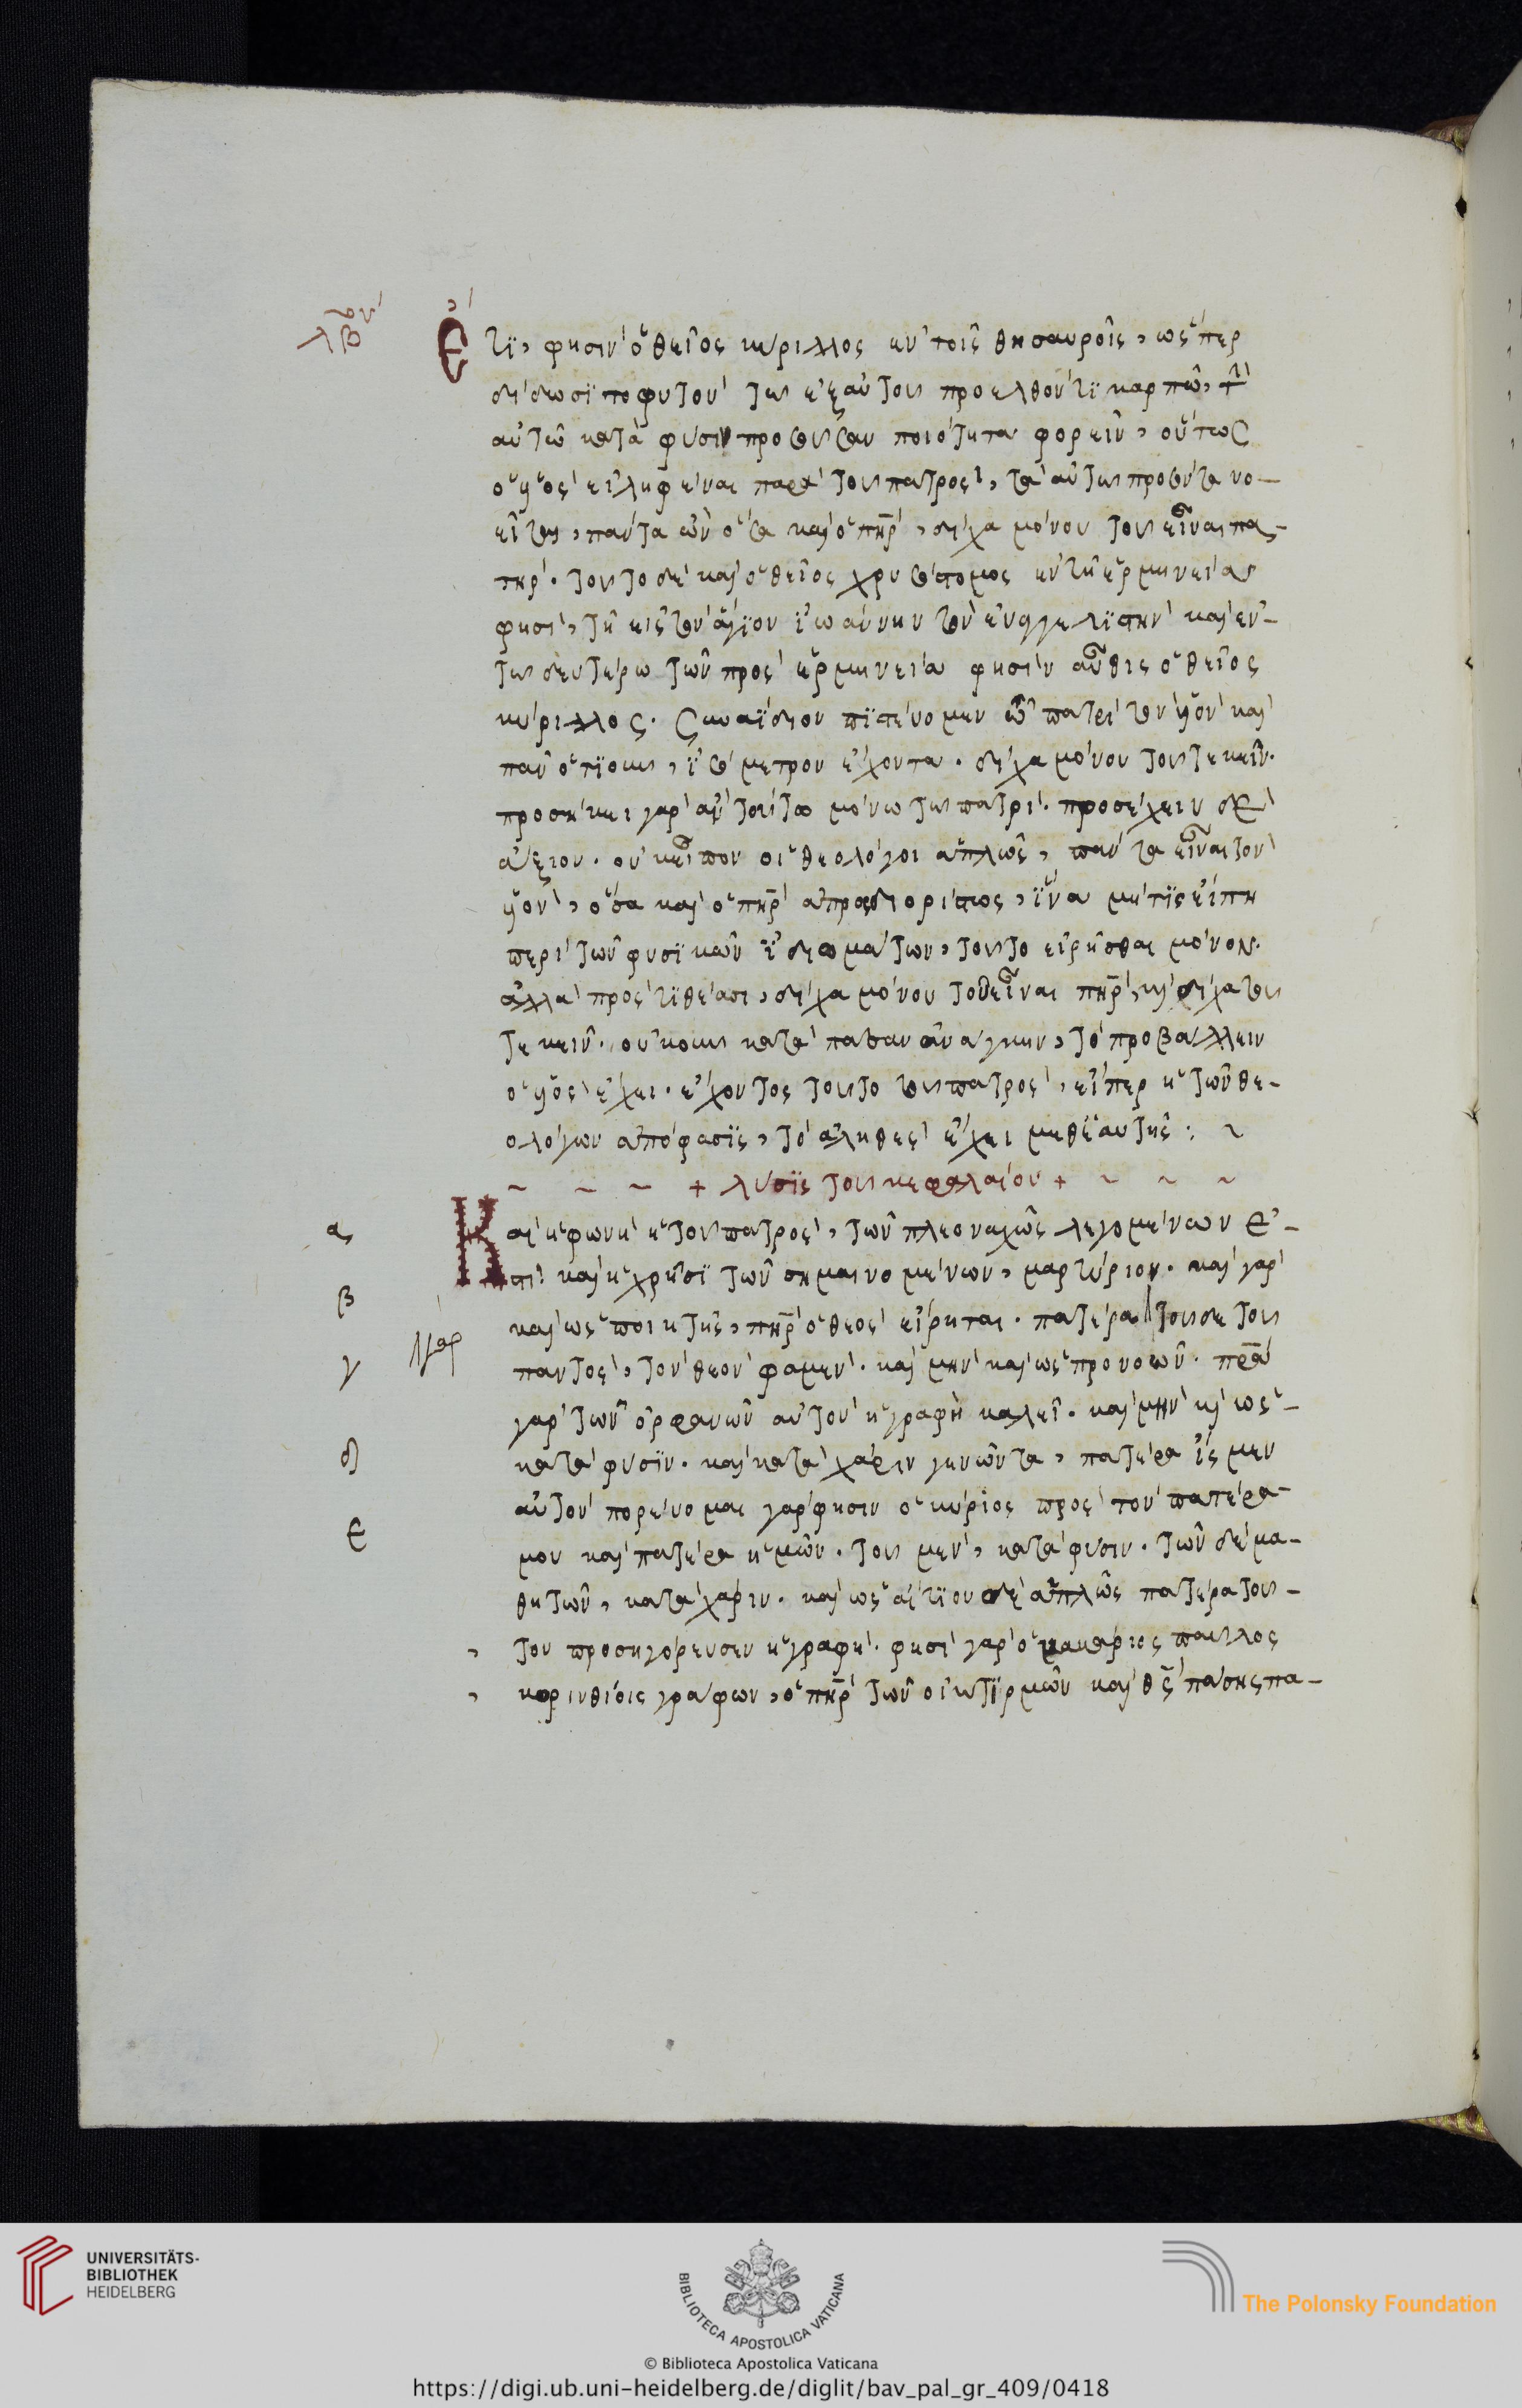 λβον
Ἔτϊ, φησὶν ὁ θεῖος κύριλλος ἐν τοῖς θησαυροῖς, ὥσπερ
δίδωσϊ το φυτὸν τω ἐξ αὐτου προελθόντϊ καρπῶ, τὴν
αὐτῶ κατὰ φύσιν προσοῦσαν ποιότητα φορεῖν, οὕτως
ὁ υἱὸς εἰληφέναι παρὰ του πατρὸς, τὰ αὐτω προσόντα νο-
εῖται, πάντα ὢν ὅσα καὶ ὁ πηρ, δίχα μόνου του εἶναι πα-
τηρ. τουτο δὲ καὶ ὁ θεῖος χρυσόστομος ἐν τῆ ἑρμηνεία
φησὶ, τῆ εἰς τὸν ἅγϊον ϊωάννην τὸν εὐαγγελϊστὴν καὶ ἐν-
τω δευτέρω τῶν πρὸς ἑρμηνεία φησὶν αὖθις ὁ θεῖος
κύριλλος. συναΐδιον πϊστεύομεν τῶ πατρὶ τὸν υἱὸν καὶ
πᾶν ὁτϊουν, ϊσόμετρον ἔχοντα. δίχα μόνου του τεκεῖν.
προσήκει γὰρ αὖ τοῦτο μόνω τω πατρί. προσέχειν δὲ
ἄξιον. οὐκ εἶπον οἱ θεολόγοι ἁπλῶς, πάντα εἶναι τὸν
υἱὸν, ὅσα καὶ ὁ πηρ ἀπροσδιορίστως, ἵνα μή τϊς εἴπη
περὶ τῶν φυσϊκῶν ἰδιωμάτων, τουτο εἰρῆσθαι μόνον.
ἀλλὰ προςτϊθέασι, δίχα μόνου το εἶναι πηρ, κὶ δίχα του
τεκεῖν. οὐκουν κατὰ πασαν ἀνάγκην, τὸ προβάλλειν
ὁ υἱὸς ἔχει. ἔχοντος τουτο του πατρὸς, εἴπερ ἡ τῶν θε-
ολόγων ἀπόφασϊς, τὸ ἀληθὲς ἔχει μεθ' ἑαυτῆς : ~
~ ~ ~ + λύσϊς του κεφαλαίου + ~ ~ ~
α Καὶ ἡ φωνὴ ἡ του πατρὸς, τῶν πλεοναχῶς λεγομένων ἐ-
στὶ καὶ ἡ χρῆσϊς τῶν σημαινομένων, μαρτύριον. καὶ γὰρ
β καὶ ὡς ποιητὴς, πηρ ὁ θεὸς εἴρηται. πατέρα γὰρ τουδε του
γ παντὸς, τὸν θεὸν φαμέν. καὶ μὴν καὶ ὡς προνοῶν. πρα
γὰρ τῶν ὀρφανῶν αὐτὸν ἡ γραφὴ καλεῖ. καὶ μὴν κὶ ὡς-
δ κατὰ φύσϊν. καὶ κατὰ χάριν γεννῶντα, πατέρα ἴσμεν
αὐτόν πορεύομαι γάρ φησιν ὁ κύριος πρὸς τὸν πατέρα
ε μου καὶ πατέρα ὑμῶν. του μὲν, κατὰ φύσιν. τῶν δὲ μα-
θητῶν, κατὰ χάριν. καὶ ὡς αἴτϊον δὲ ἁπλῶς πατέρα του-
τον προσηγόρευσεν ἡ γραφή. φησὶ γὰρ ὁ μακάριος παυλος
κορινθίοις γράφων, ὁ πηρ τῶν οἰκτϊρμῶν καὶ θς πάσης πα-
UNIVERSITÄTS-
BIBLIOTHEK
HEIDELBERG
BIBLIOTECA APOSTOLICA VATICANA
© Biblioteca Apostolica Vaticana
The Polonsky Foundation
https://digi.ub.uni-heidelberg.de/diglit/bav_pal_gr_409/0418